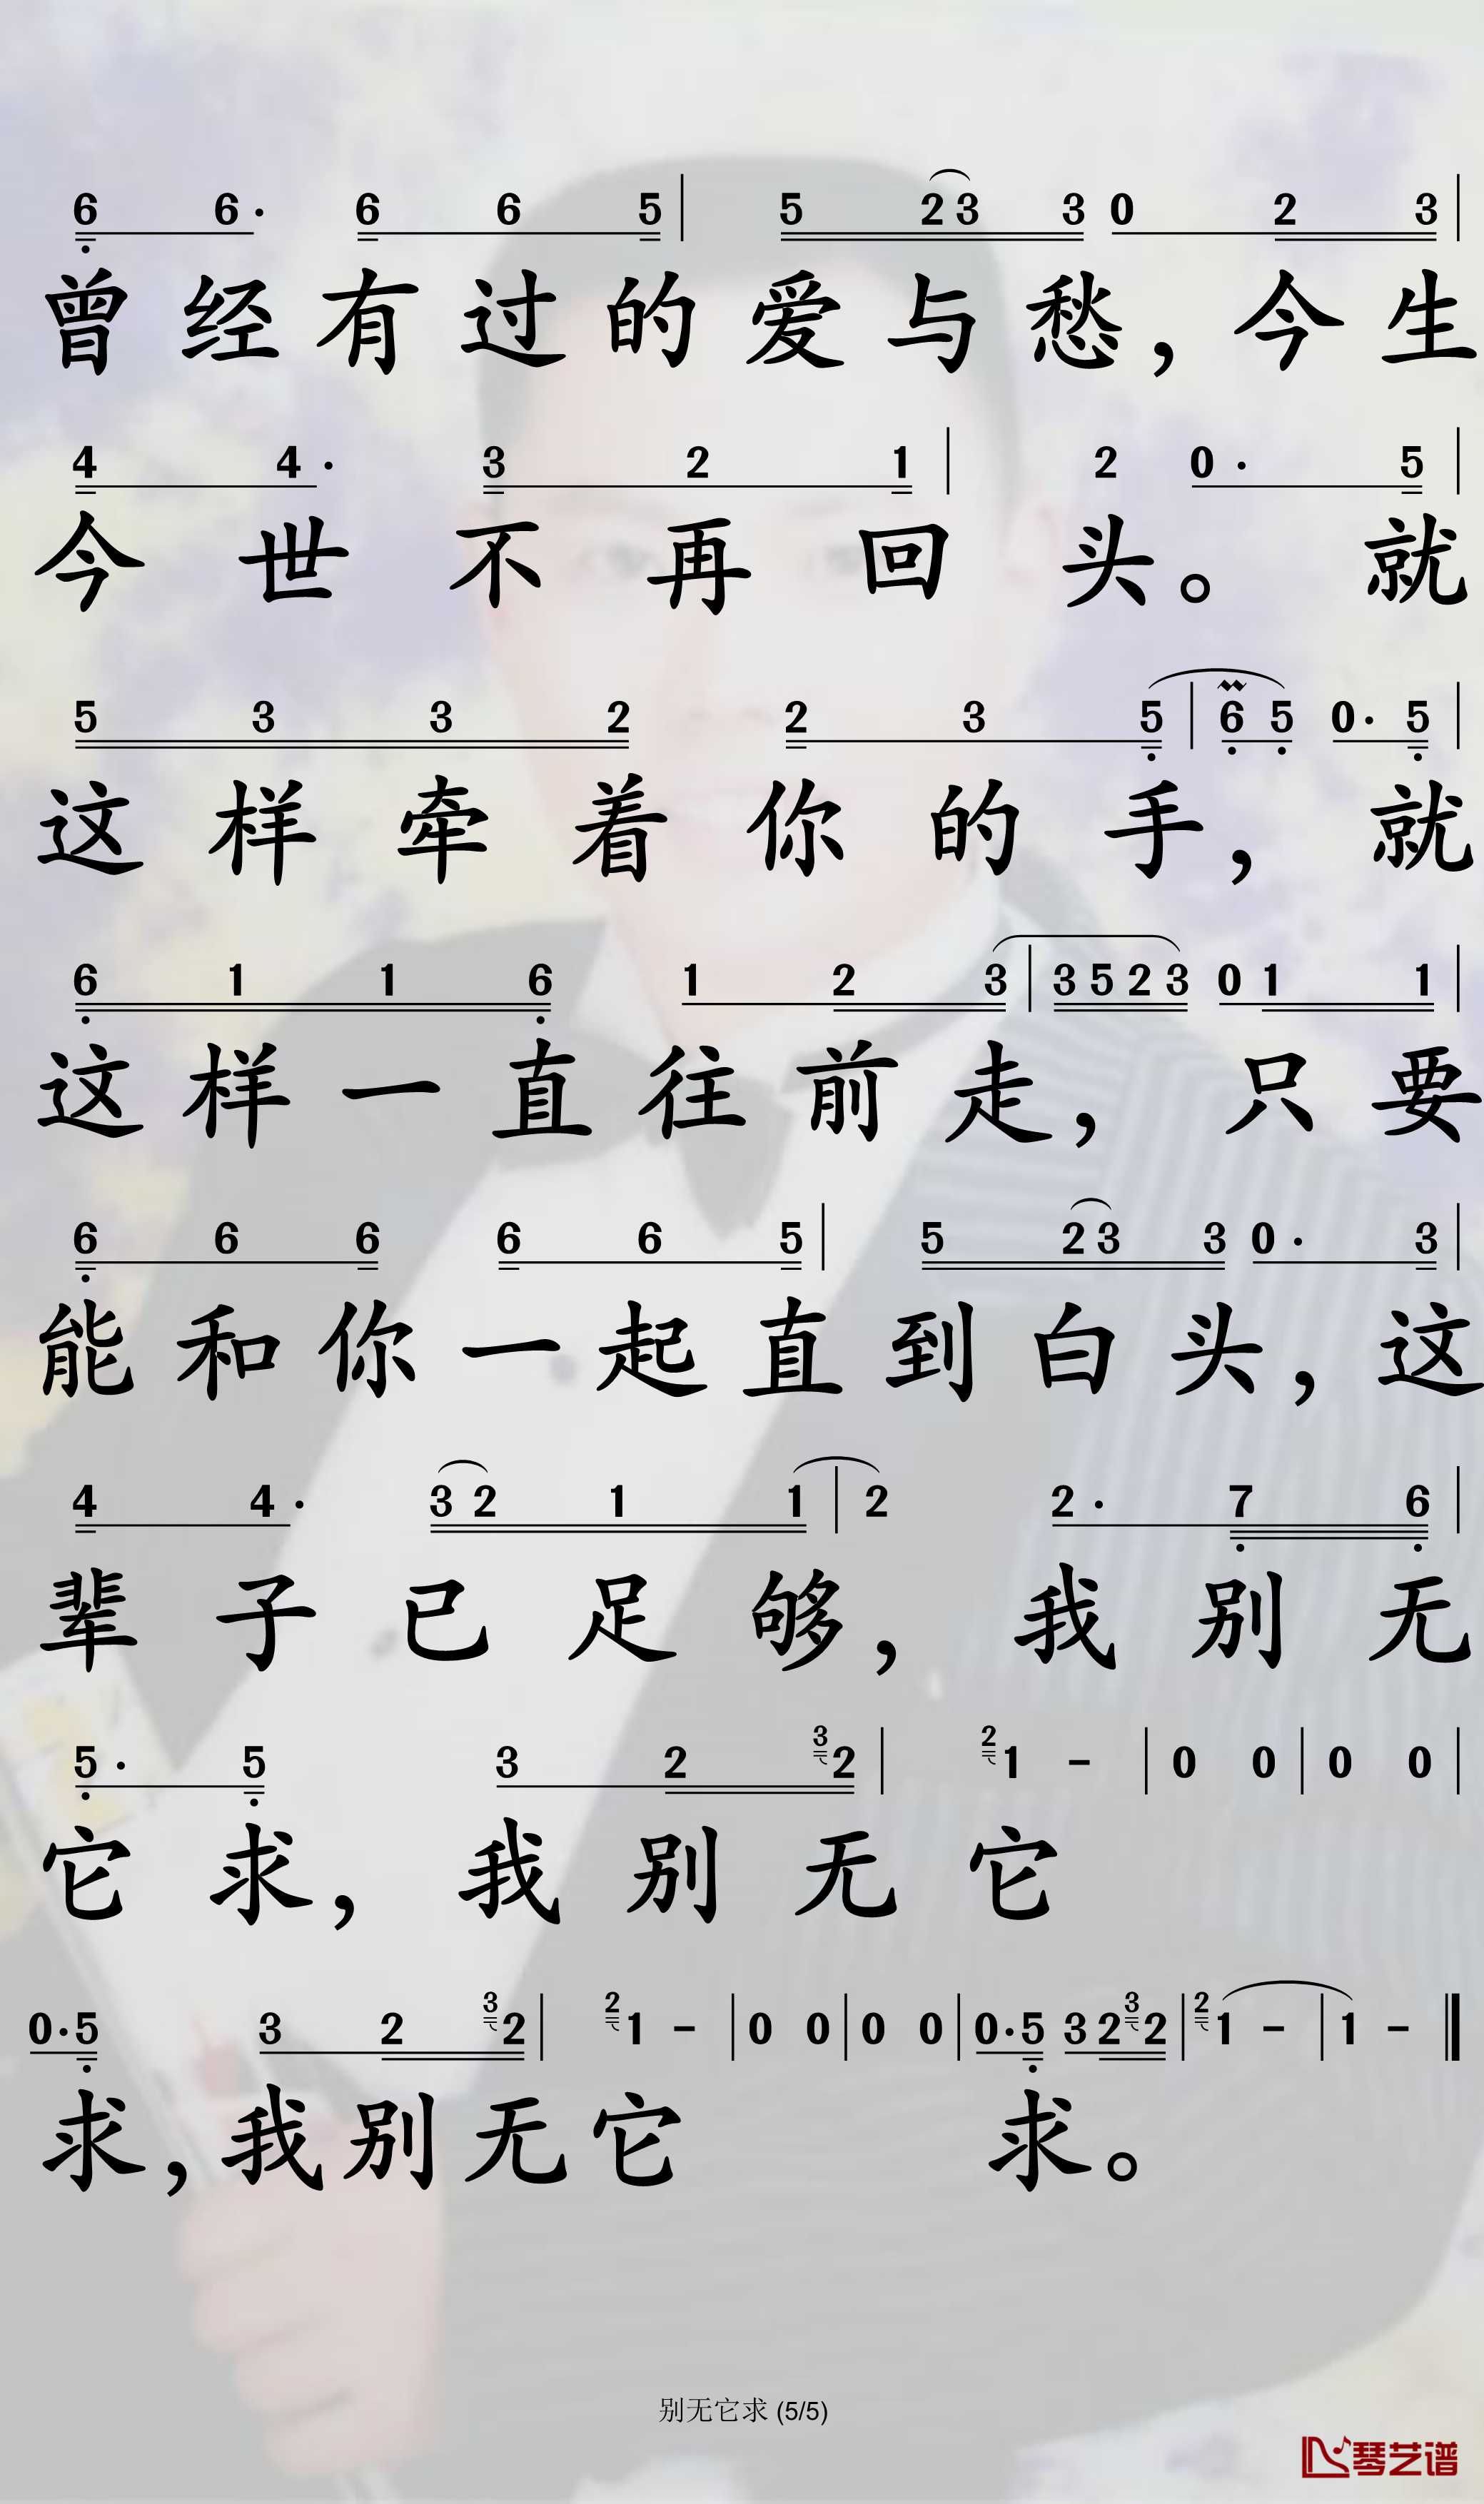 6 6· 6 6 5 | 5 2 3 3 0 2 3 |
曾经有过的爱与愁，今生
4 4· 3 2 1 | 2 0· 5 |
今世不再回头。 就
5 3 3 2 2 3 5 | 6 5 0· 5 |
这样牵着你的手， 就
6 1 1 6 1 2 3 | 3 5 2 3 0 1 1 |
这样一直往前走， 只要
6 6 6 6 6 5 | 5 2 3 3 0· 3 |
能和你一起直到白头，这
4 4· 3 2 1 1 | 2 2· 7 6 |
辈子已足够， 我别无
5· 5 3 2 3 2 | 2 1 - | 0 0 | 0 0 |
它求，我别无它
0· 5 3 2 3 2 | 2 1 - | 0 0 | 0 0 | 0· 5 3 2 3 2 | 2 1 - | 1 - ‖
求，我别无它 求。
别无它求 (5/5)
琴艺谱